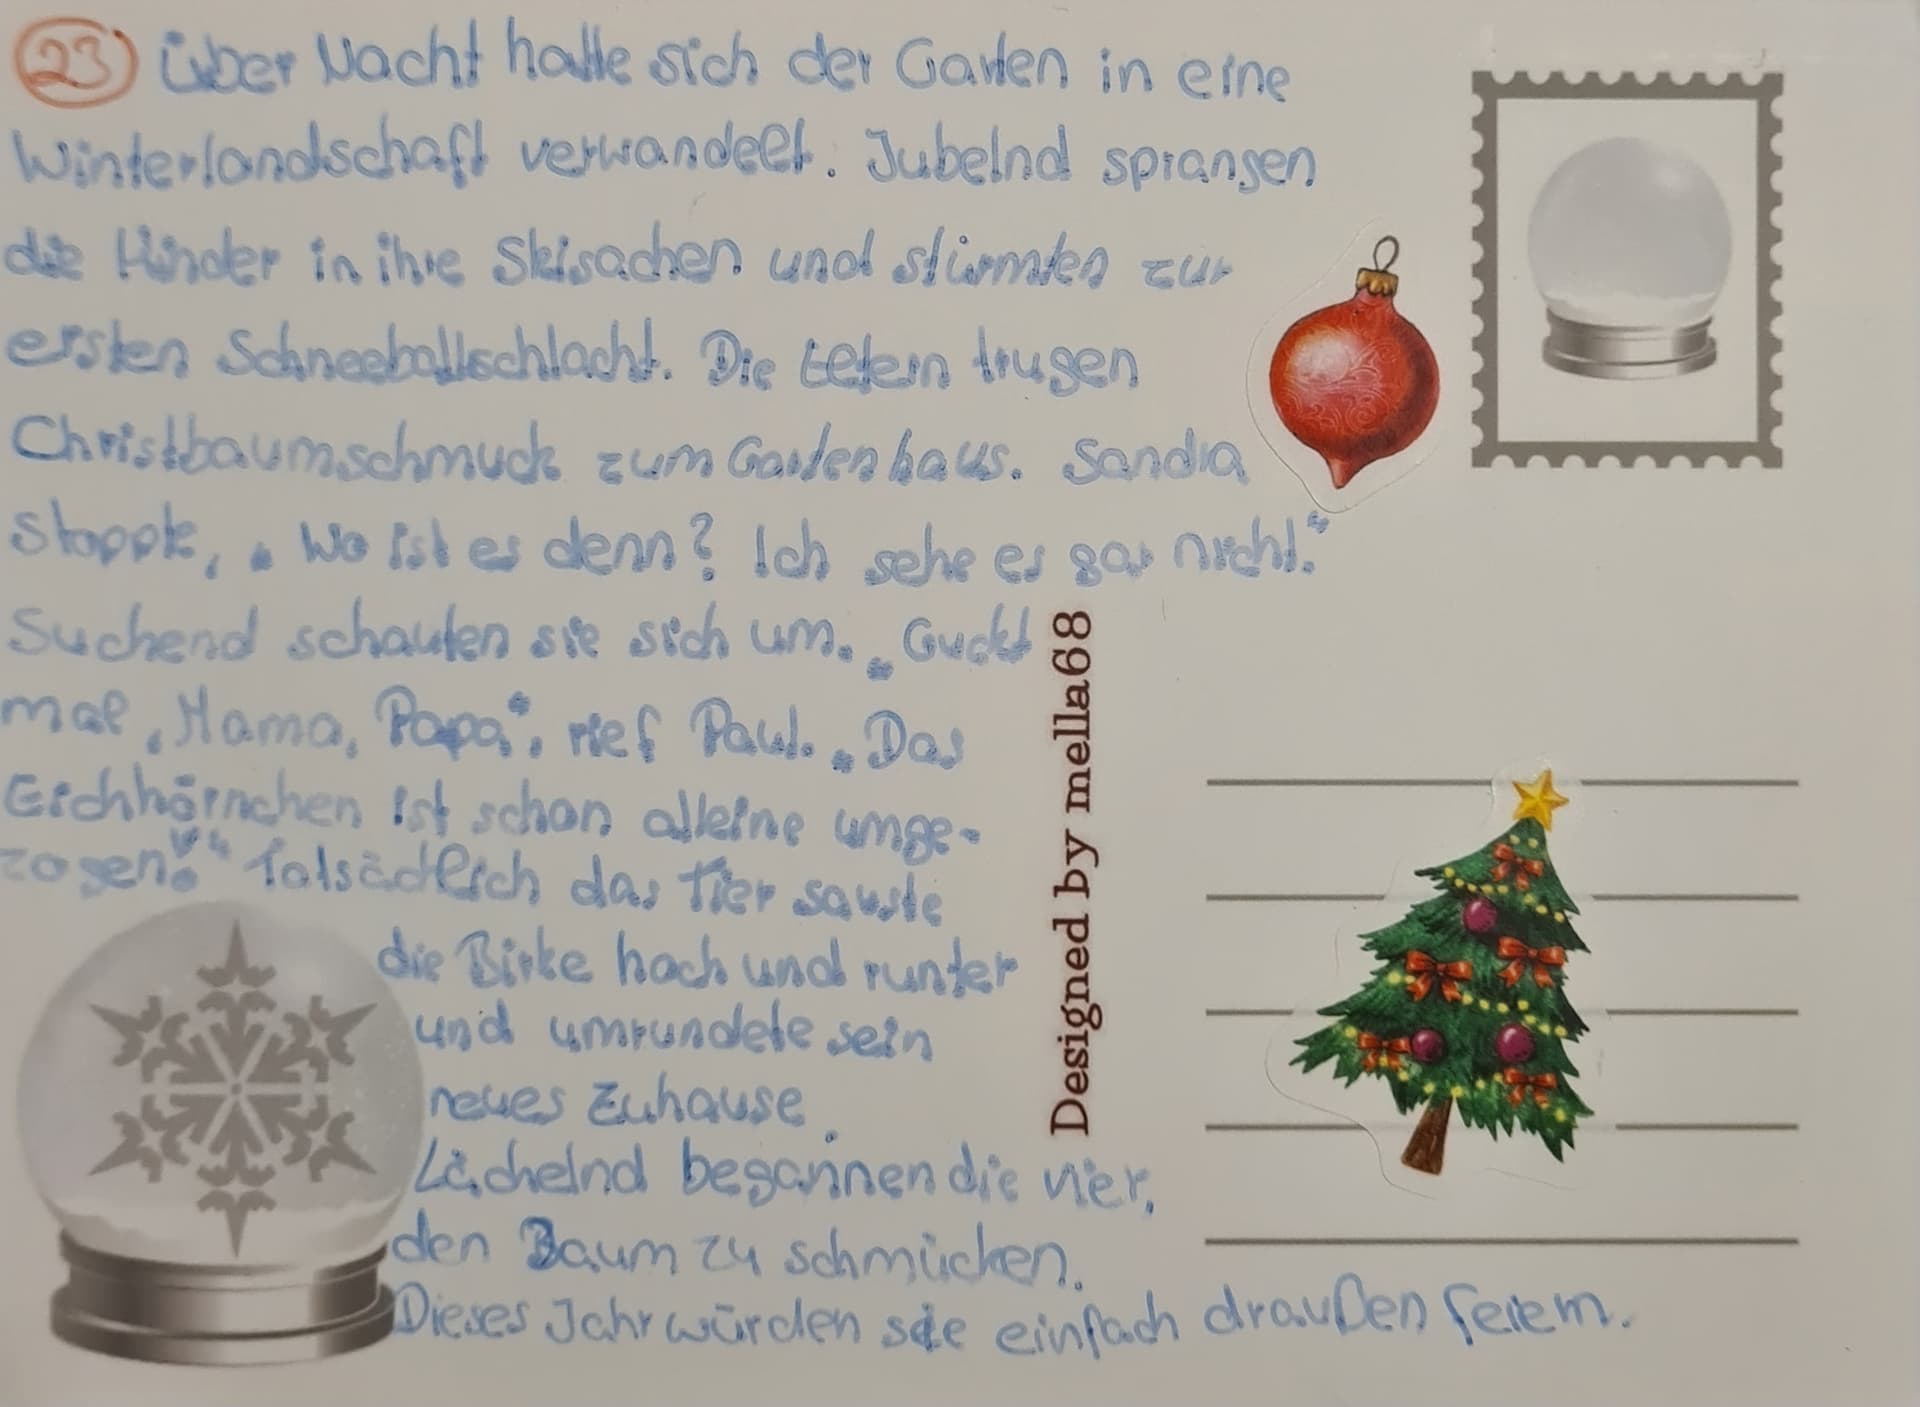 23 Über Nacht hatte sich der Garten in eine
Winterlandschaft verwandelt. Jubelnd sprangen
die Kinder in ihre Skisachen und stürmten zur
ersten Schneeballschlacht. Die Eltern trugen
Christbaumschmuck zum Gartenhaus. Sandra
stoppte, „Wo ist es denn? Ich sehe es gar nicht.“
Suchend schauten sie sich um. „Guckt
mal, Mama, Papa“, rief Paul. „Das
Eichhörnchen ist schon alleine umge-
zogen!“ Tatsächlich das Tier sauste
die Birke hoch und runter
und umrundete sein
neues Zuhause.
Lächelnd begannen die vier,
den Baum zu schmücken.
Dieses Jahr würden sie einfach draußen feiern.
Designed by mella68